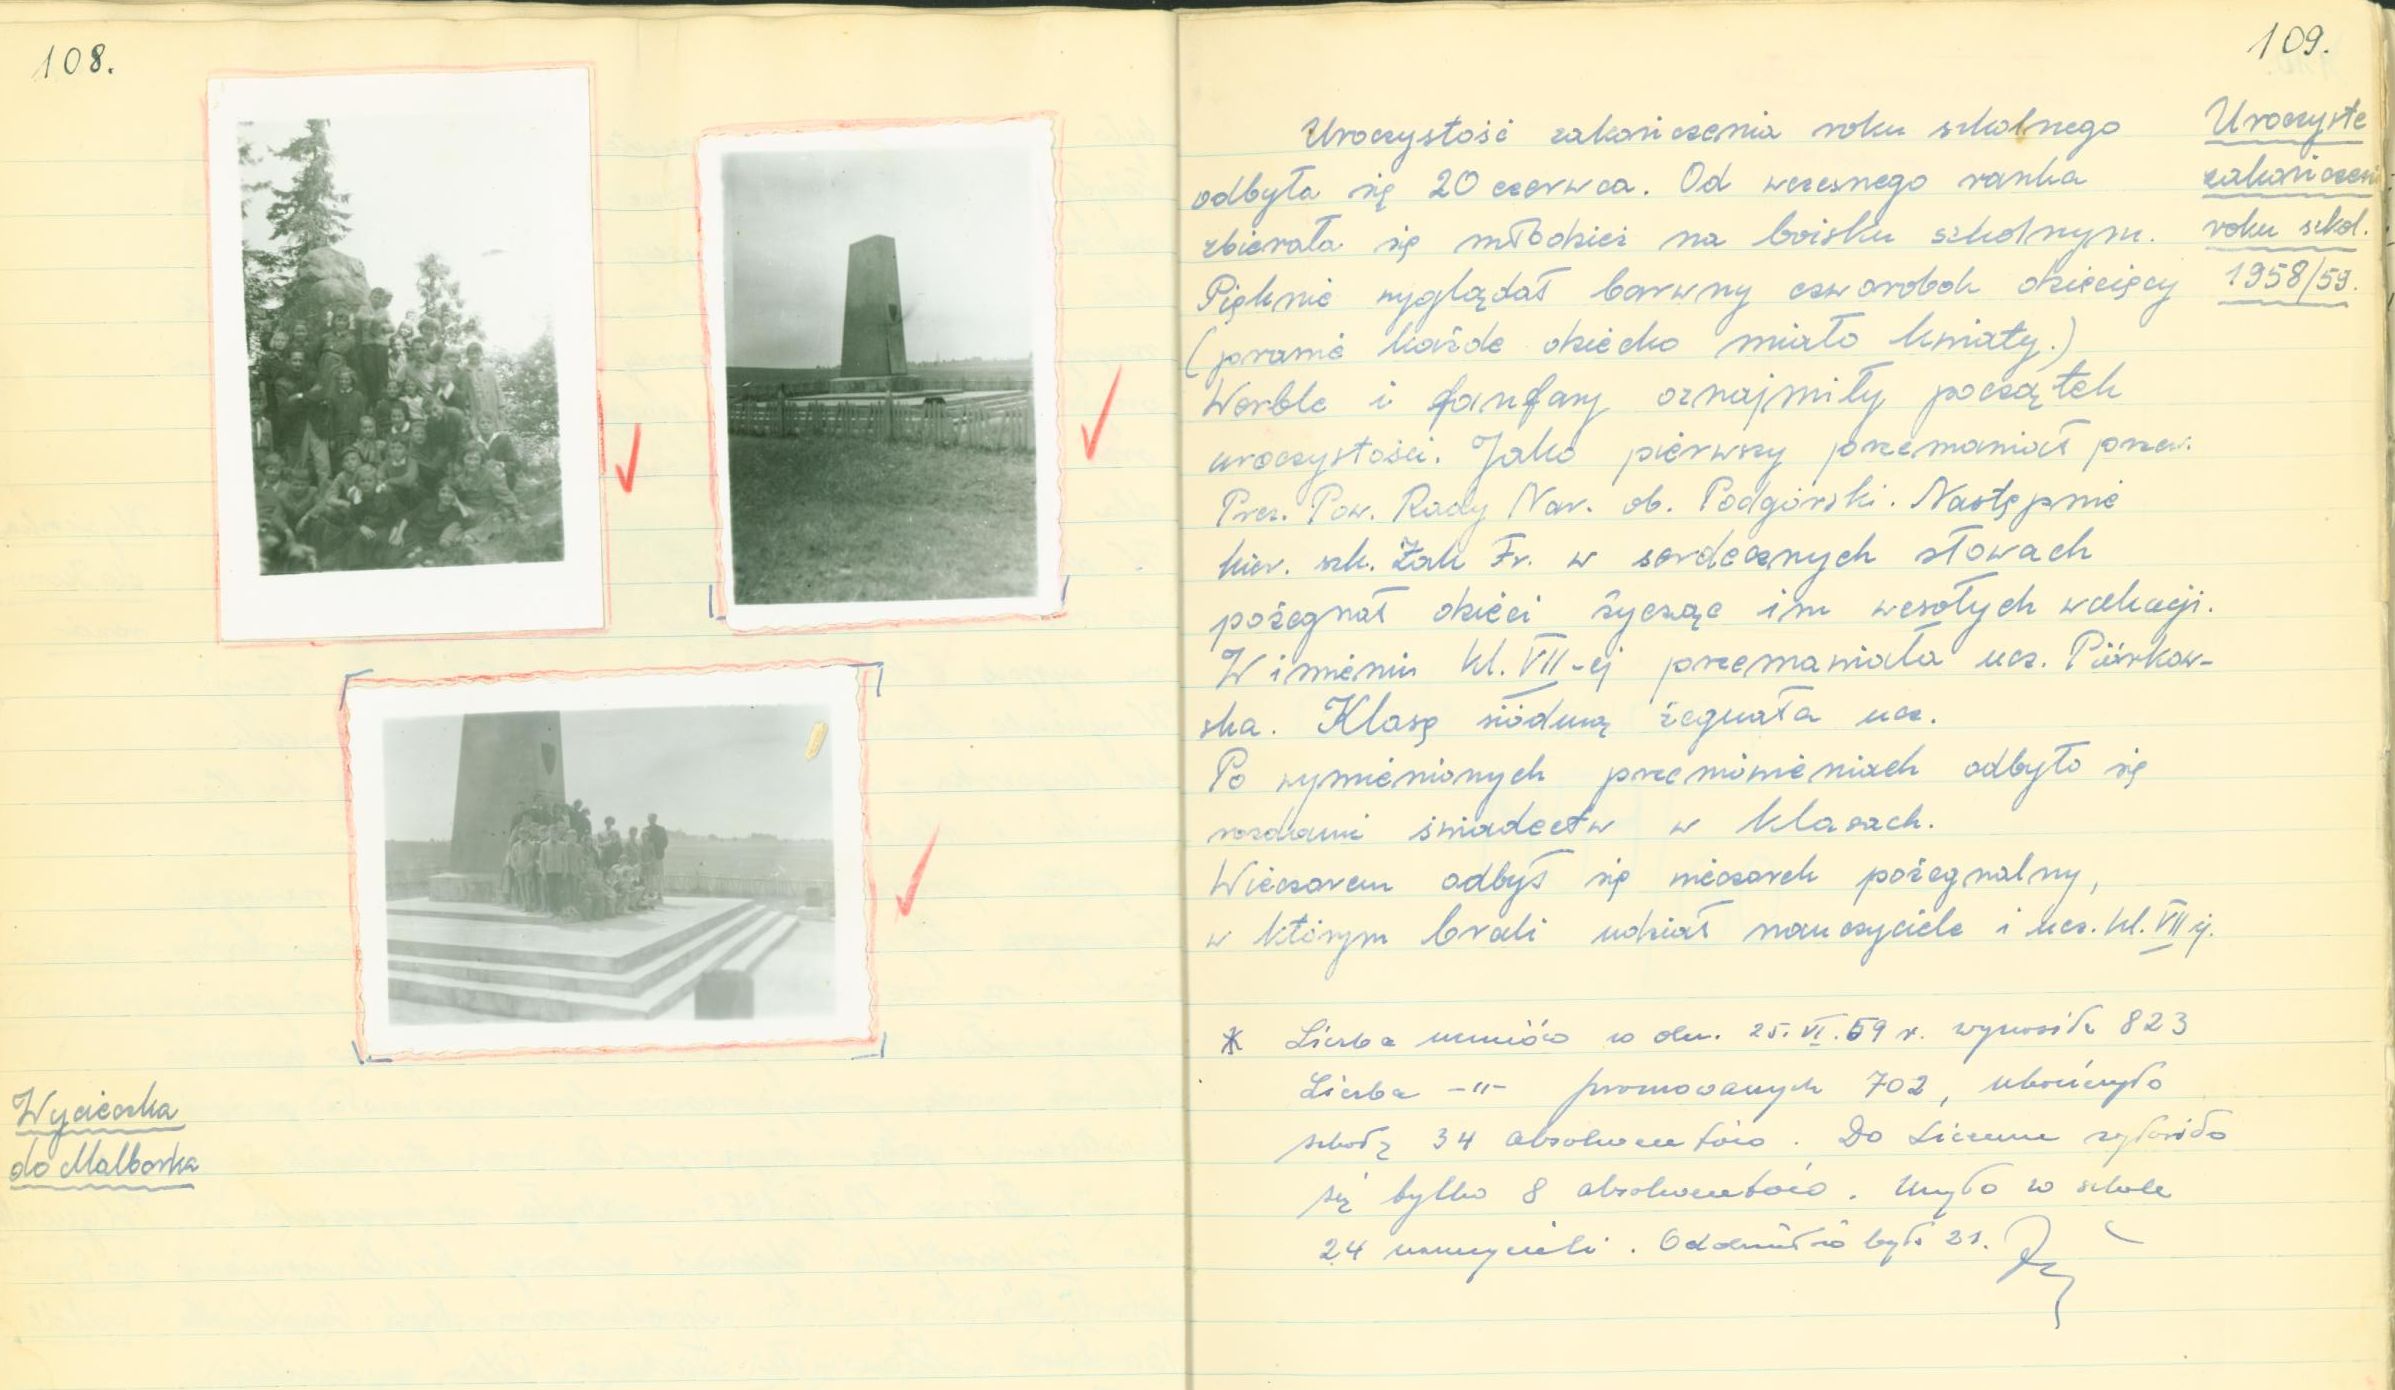 108.
Wycieczka
do Malborka
109.
Uroczyste
zakończenie
roku szkol.
1958/59.
Uroczystość zakończenia roku szkolnego
odbyła się 20 czerwca. Od wczesnego ranka
zbierała się młodzież na boisku szkolnym.
Pięknie wyglądał barwny czworobok dziecięcy
(prawie każde dziecko miało kwiaty.)
Werble i fanfary oznajmiły początek
uroczystości. Jako pierwszy przemawiał przew.
Prez. Pow. Rady Nar. ob. Podgórski. Następnie
kier. szk. Żak Fr. w serdecznych słowach
pożegnał dzieci życząc im wesołych wakacji.
W imieniu kl. VII-ej przemawiała ucz. Piórkow-
ska. Klasę siódmą żegnała ucz.
Po wymienionych przemówieniach odbyło się
rozdanie świadectw w klasach.
Wieczorem odbył się wieczorek pożegnalny,
w którym brali udział nauczyciele i ucz. kl. VII ej.
* Liczba uczniów w dn. 25.VI.59 r. wynosiła 823
Liczba -"- promowanych 702, ukończyło
szkołę 34 absolwentów. Do Liceum zgłosiło
się tylko 8 absolwentów. Uczyło w szkole
24 nauczycieli. Oddziałów było 21.